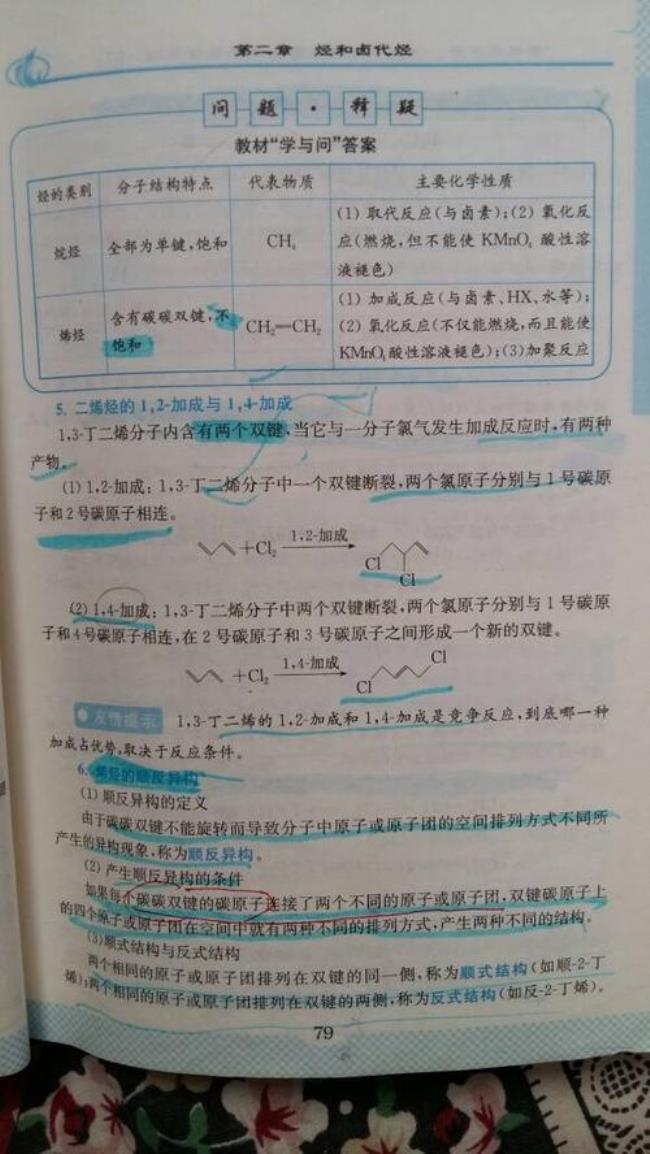 第二章 烃和卤代烃
问题·释疑
教材“学与问”答案
烃的类别 分子结构特点 代表物质 主要化学性质
烷烃 全部为单键,饱和 CH₄ (1) 取代反应(与卤素);(2) 氧化反
应(燃烧,但不能使 KMnO₄ 酸性溶
液褪色)
烯烃 含有碳碳双键,不
饱和 CH₂═CH₂ (1) 加成反应(与卤素、HX、水等);
(2) 氧化反应(不仅能燃烧,而且能使
KMnO₄酸性溶液褪色);(3)加聚反应
5. 二烯烃的 1,2-加成与 1,4-加成
1,3-丁二烯分子内含有两个双键,当它与一分子氯气发生加成反应时,有两种
产物。
(1) 1,2-加成: 1,3-丁二烯分子中一个双键断裂,两个氯原子分别与 1 号碳原
子和 2 号碳原子相连。
+Cl₂ 1,2-加成 Cl Cl
(2) 1,4-加成: 1,3-丁二烯分子中两个双键断裂,两个氯原子分别与 1 号碳原
子和 4 号碳原子相连,在 2 号碳原子和 3 号碳原子之间形成一个新的双键。
+Cl₂ 1,4-加成 Cl Cl
友情提示 1,3-丁二烯的 1,2-加成和 1,4-加成是竞争反应,到底哪一种
加成占优势,取决于反应条件。
6. 烯烃的顺反异构
(1) 顺反异构的定义
由于碳碳双键不能旋转而导致分子中原子或原子团的空间排列方式不同所
产生的异构现象,称为顺反异构。
(2) 产生顺反异构的条件
如果每个碳碳双键的碳原子连接了两个不同的原子或原子团,双键碳原子上
的四个原子或原子团在空间中就有两种不同的排列方式,产生两种不同的结构。
(3)顺式结构与反式结构
两个相同的原子或原子团排列在双键的同一侧,称为顺式结构(如顺-2-丁
烯);两个相同的原子或原子团排列在双键的两侧,称为反式结构(如反-2-丁烯)。
79